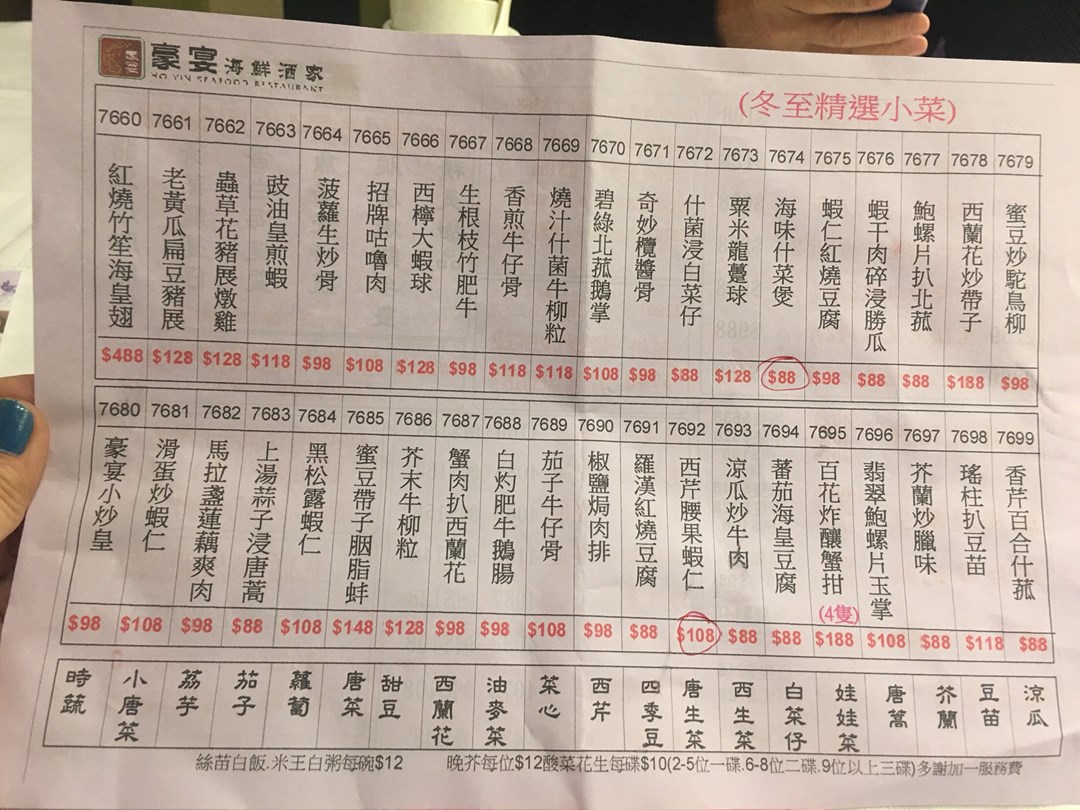 豪宴海鮮酒家
HO YIN SEAFOOD RESTAURANT
(冬至精選小菜)
7660 7661 7662 7663 7664 7665 7666 7667 7668 7669 7670 7671 7672 7673 7674 7675 7676 7677 7678 7679
紅燒竹笙海皇翅
老黃瓜扁豆豬展
蟲草花豬展燉雞
豉油皇煎蝦
菠蘿生炒骨
招牌咕嚕肉
西檸大蝦球
生根枝竹肥牛
香煎牛仔骨
燒汁什菌牛柳粒
碧綠北菰鵝掌
奇妙欖醬骨
什菌浸白菜仔
粟米龍躉球
海味什菜煲
蝦仁紅燒豆腐
蝦干肉碎浸勝瓜
鮑螺片扒北菰
西蘭花炒帶子
蜜豆炒駝鳥柳
$488 $128 $128 $118 $98 $108 $128 $98 $118 $118 $108 $98 $88 $128 $88 $98 $88 $88 $188 $98
7680 7681 7682 7683 7684 7685 7686 7687 7688 7689 7690 7691 7692 7693 7694 7695 7696 7697 7698 7699
豪宴小炒皇
滑蛋炒蝦仁
馬拉盞蓮藕爽肉
上湯蒜子浸唐蒿
黑松露蝦仁
蜜豆帶子胭脂蚌
芥末牛柳粒
蟹肉扒西蘭花
白灼肥牛鵝腸
茄子牛仔骨
椒鹽焗肉排
羅漢紅燒豆腐
西芹腰果蝦仁
涼瓜炒牛肉
蕃茄海皇豆腐
百花炸釀蟹拑
(4隻)
翡翠鮑螺片玉掌
芥蘭炒臘味
瑤柱扒豆苗
香芹百合什菰
$98 $108 $98 $88 $108 $148 $128 $98 $98 $108 $98 $88 $108 $88 $88 $188 $108 $88 $118 $88
時蔬
小唐菜
荔芋
茄子
蘿蔔
唐菜
甜豆
西蘭花
油麥菜
菜心
西芹
四季豆
唐生菜
西生菜
白菜仔
娃娃菜
唐蒿
芥蘭
豆苗
涼瓜
絲苗白飯.米王白粥每碗$12 晚芥每位$12酸菜花生每碟$10(2-5位一碟.6-8位二碟.9位以上三碟)多謝加一服務費